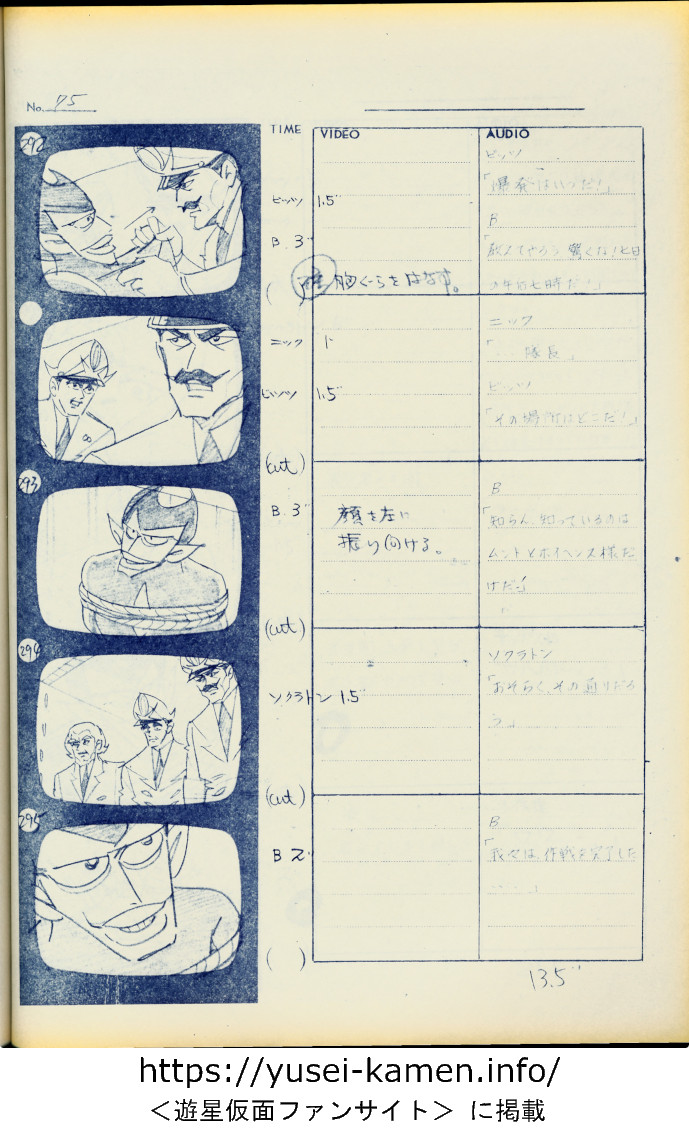 No. 75
TIME VIDEO AUDIO
292
ピッツ
「爆発はいつだ!」
ピッツ 1.5"
B
B. 3"
「教えてやろう 驚くな!七日
の午后七時だ!」
胸ぐらをはなす。
(
ニック
ニック 1"
「・・・隊長」
ピッツ
ピッツ 1.5"
「その場所はどこだ!」
(cut)
293
B
B. 3"
顔を左に
振り向ける。
「知らん、知っているのは
ムントとホイヘンス様だ
けだ!
(cut)
294
ソクラトン
ソクラトン 1.5"
「おそらく、その通りだろ
う。」
(cut)
295
B
B 2"
「我々は、作戦を完了した
・・・・」
( )
13.5"
https://yusei-kamen.info/
<遊星仮面ファンサイト> に掲載